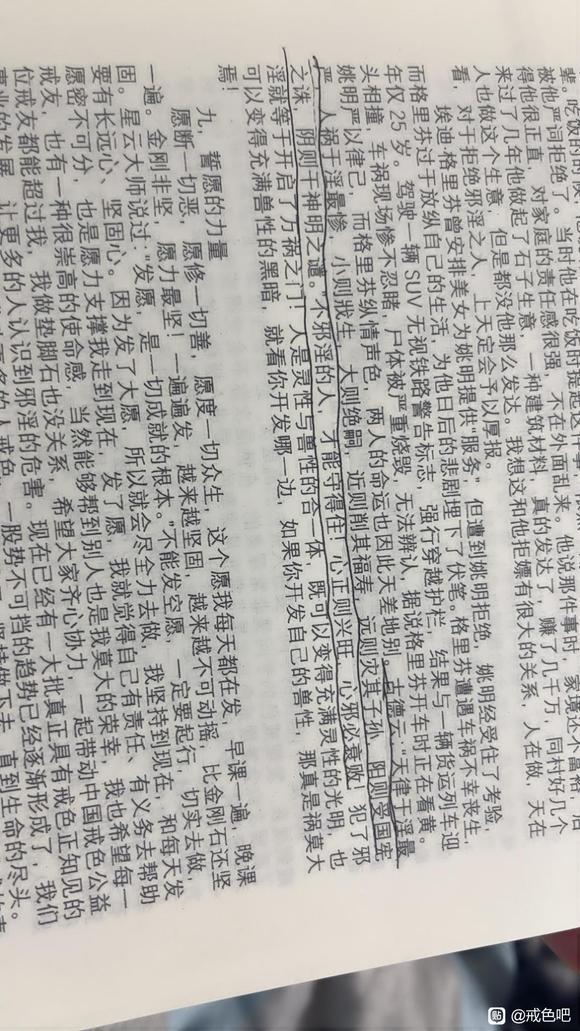 辈。吃饭的时
被他严词拒绝了。当时他在吃饭的
得他很正直，对家庭的责任感很强，不在外面乱来。他说那件事时，家境还不富裕，后
来过了几年他做起了石子生意，一种建筑材料，真的发达了，赚了几千万，同村好几个
人也做这个生意，但是都没他那么发达。我想这和他拒嫖有很大的关系，人在做，天在
看，对于拒绝邪淫之人，上天定会予以厚报。
埃迪·格里芬曾安排美女为姚明提供“服务”，但遭到姚明拒绝，姚明经受住了考验，
而格里芬过于放纵自己的生活，为他日后的悲剧埋下了伏笔。格里芬遭遇车祸不幸丧生，
年仅 25 岁。驾驶一辆 SUV 无视铁路警告标志，强行穿越护栏，结果与一辆货运列车迎
头相撞，车祸现场惨不忍睹，尸体被严重烧毁，无法辨认，据说格里芬开车时正在看黄。
姚明严以律己，而格里芬纵情声色，两人的命运也因此天差地别。古德云：“天律于淫最
严，人祸于淫最惨，小则戕生，大则绝嗣，近则削其福寿，远则灾其子孙，阳则受国宪
之诛，阴则干神明之谴。”不邪淫的人，才能守得住，心正则兴旺，心邪必衰败！犯了邪
淫就等于开启了万祸之门！人是灵性与兽性的合一体，既可以变得充满灵性的光明，也
可以变得充满兽性的黑暗，就看你开发哪一边，如果你开发自己的兽性，那真是祸莫大
焉！
九、誓愿的力量
愿断一切恶，愿修一切善，愿度一切众生，这个愿我每天都在发，早课一遍，晚课
一遍。金刚非坚，愿力最坚！一遍遍发，越来越坚固，越来越不可动摇，比金刚石还坚
固。星云大师说过：“发愿，是一切成就的根本。”不能发空愿，一定要起行，切实去做，
要有长远心、坚固心。因为发了大愿，所以就会尽全力去做，我坚持到现在，和每天发
愿密不可分，也是愿力支撑我走到现在，发了愿，我就觉得自己有责任、有义务去帮助
戒友，也有一种很崇高的使命感，当然能够帮到别人也是我莫大的荣幸，我也希望每一
位戒友都能超过我，我做垫脚石也没关系，希望大家齐心协力，一起带动中国戒色公益
事业的发展，让更多的人认识到邪淫的危害。现在已经有一大批真正具有戒色正知见的
一股势不可挡的趋势已经逐渐形成了，我们
坚持做下去，直到生命的尽头。
贴 @戒色吧